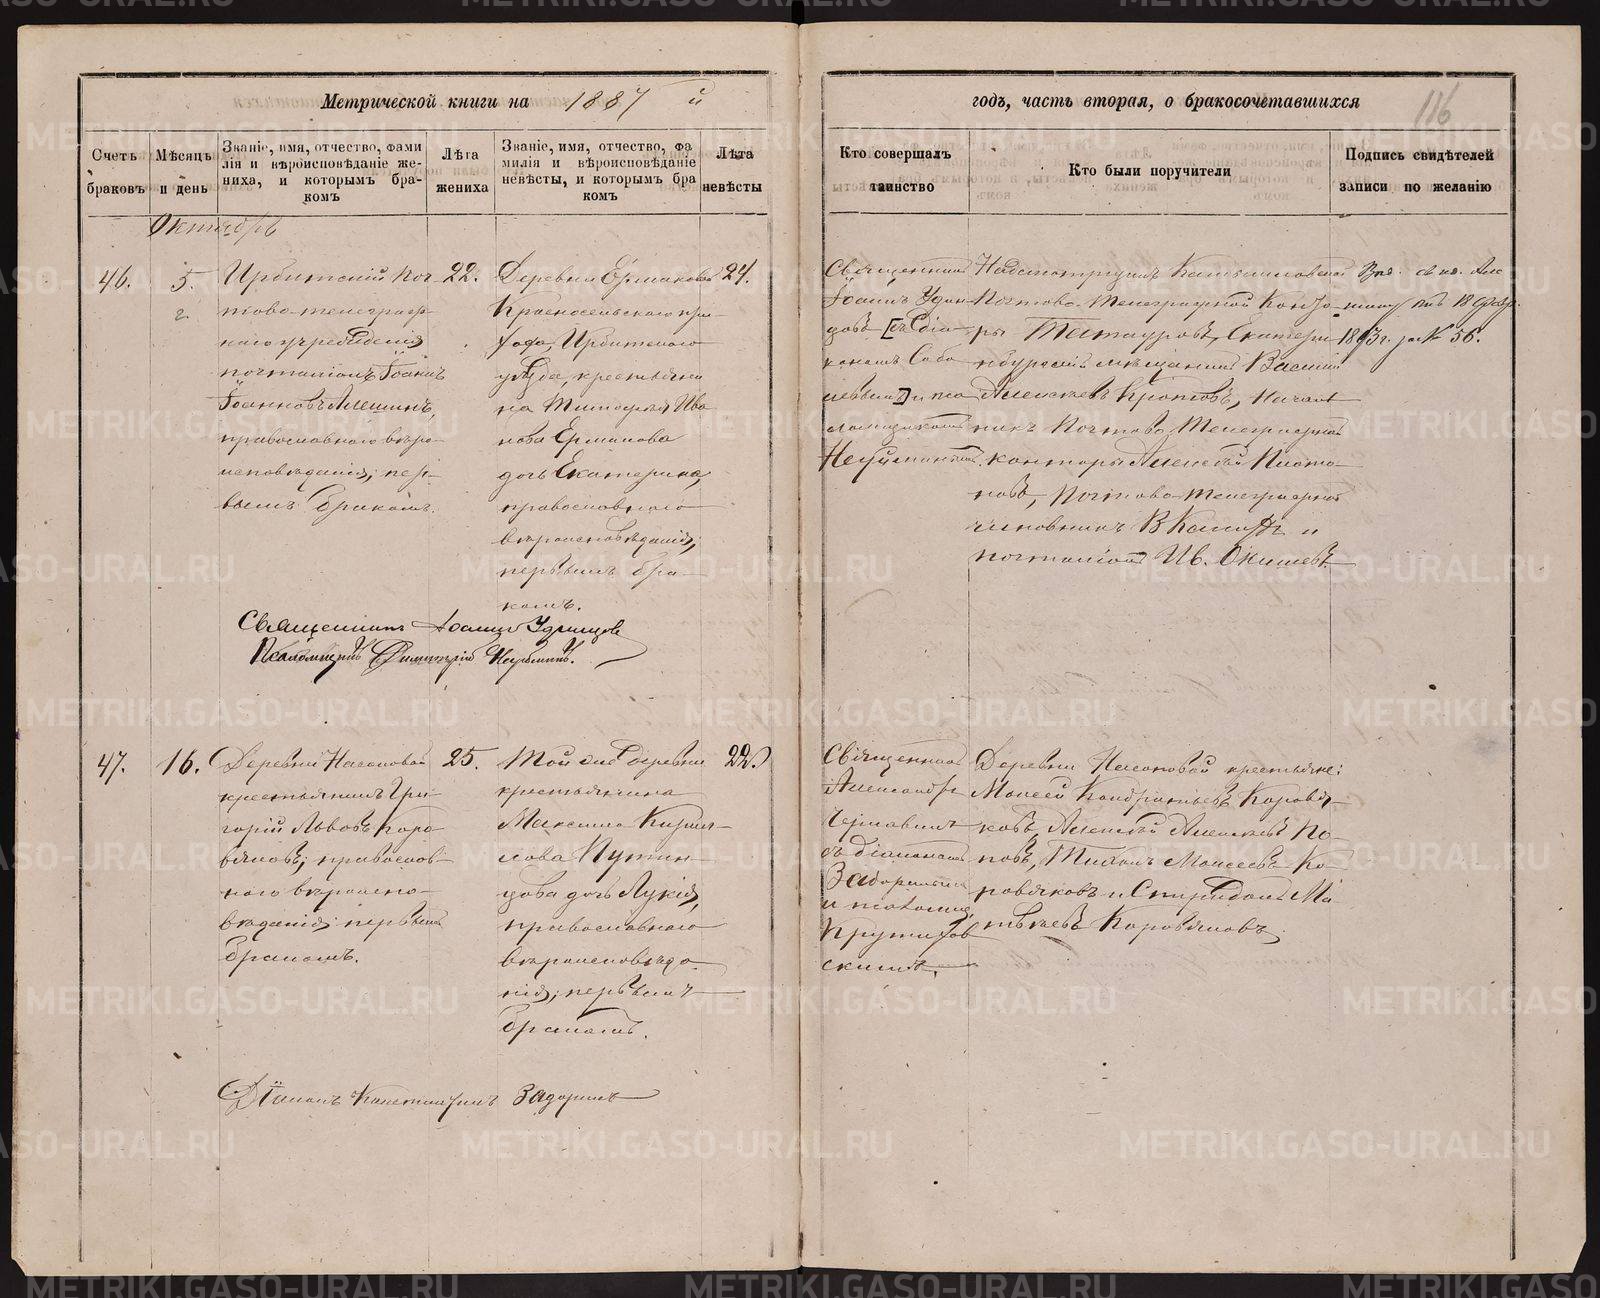 Метрической книги на 1887 й
годъ, часть вторая, о бракосочетавшихся
116
Счетъ браковъ
Мѣсяцъ и день
Званіе, имя, отчество, фами
лія и вѣроисповѣданіе же-
ниха, и которымъ бра-
комъ
Лѣта жениха
Званіе, имя, отчество, фа
милія и вѣроисповѣданіе
невѣсты, и которымъ бра
комъ
Лѣта невѣсты
Кто совершалъ
таинство
Кто были поручители
Подпись свидѣтелей
записи по желанію
Октябрь
46.
5.
Ирбитскій поч
тово-телеграф-
наго учрежденія
почталіонъ Іоаннъ
Іоанновъ Алешинъ,
православнаго вѣро-
исповѣданія; пер-
вымъ бракомъ.
22.
Деревни Ермаковой
Красносельскаго при-
хода, Ирбитскаго
уѣзда, крестьяни
на Тимофея Ива
нова Ермакова
дочь Екатерина,
православнаго
вѣроисповѣданія;
первымъ бра-
комъ.
24.
Священникъ
Іоаннъ Удин-
цовъ [съ Діа-
кономъ
и пса
ломщикомъ
Неуйминымъ.
Надсмотрщикъ Камышловской
Почтово-Телеграфной Конто-
ры Татауровъ, Екатери-
нбургскій мѣщанинъ Василій
Алексѣевъ Кротовъ, Началь
никъ Почтово-Телеграфной
конторы Алексѣй Плота-
новъ, Почтово-телеграфной
чиновникъ В
почталіонъ Ив. Окишевъ.
18 февр.
за № 56.
Священникъ Іоаннъ Удинцовъ
Псаломщикъ Димитрій Неуйминъ.
47.
16.
Деревни Насоновой
крестьянинъ Гри-
горій Львовъ Коро-
вяковъ; православ-
наго вѣроиспо-
вѣданія; первымъ
бракомъ.
25.
Той же деревни
крестьянина
Максима Кирил-
лова Путин-
цова дочь Лукія,
православнаго
вѣроисповѣда-
нія; первымъ
бракомъ.
22.
Священникъ
Александръ
Чернавинъ
съ діакономъ
Задоринымъ
и псаломщ.
Крутихов
скимъ.
Деревни Насоновой крестьяне:
Моисей Кондратьевъ Коровя-
ковъ, Алексѣй Алексѣевъ По-
повъ, Тихонъ Моисеевъ Ко-
ровяковъ и Спиридонъ Ма-
твѣевъ Коровяковъ.
Діаконъ Константинъ Задоринъ
METRIKI.GASO-URAL.RU